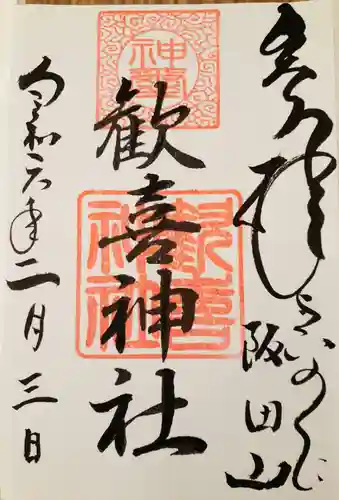 奉拝
さいのくに
阪田山
歓喜神社
令和六年二月三日
歓喜
神社